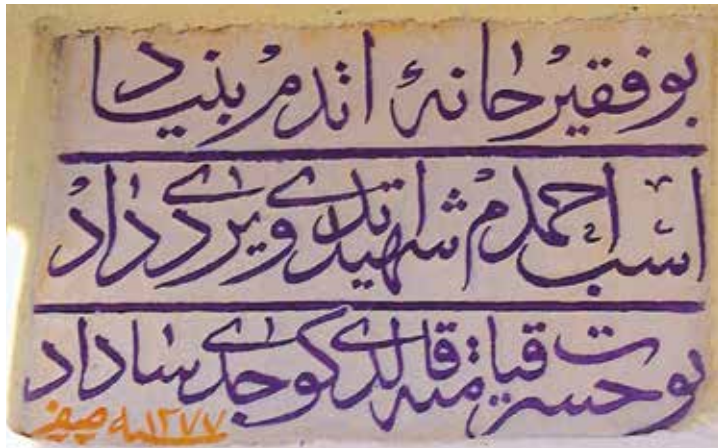 بو فقیر خانهٔ اتدم بنیاد
اسب احمدم شهید اتدی ویردی داد
بو حسرت قیامته قالدی کوجدی سادات
سنه ١٢٧٧ صفر